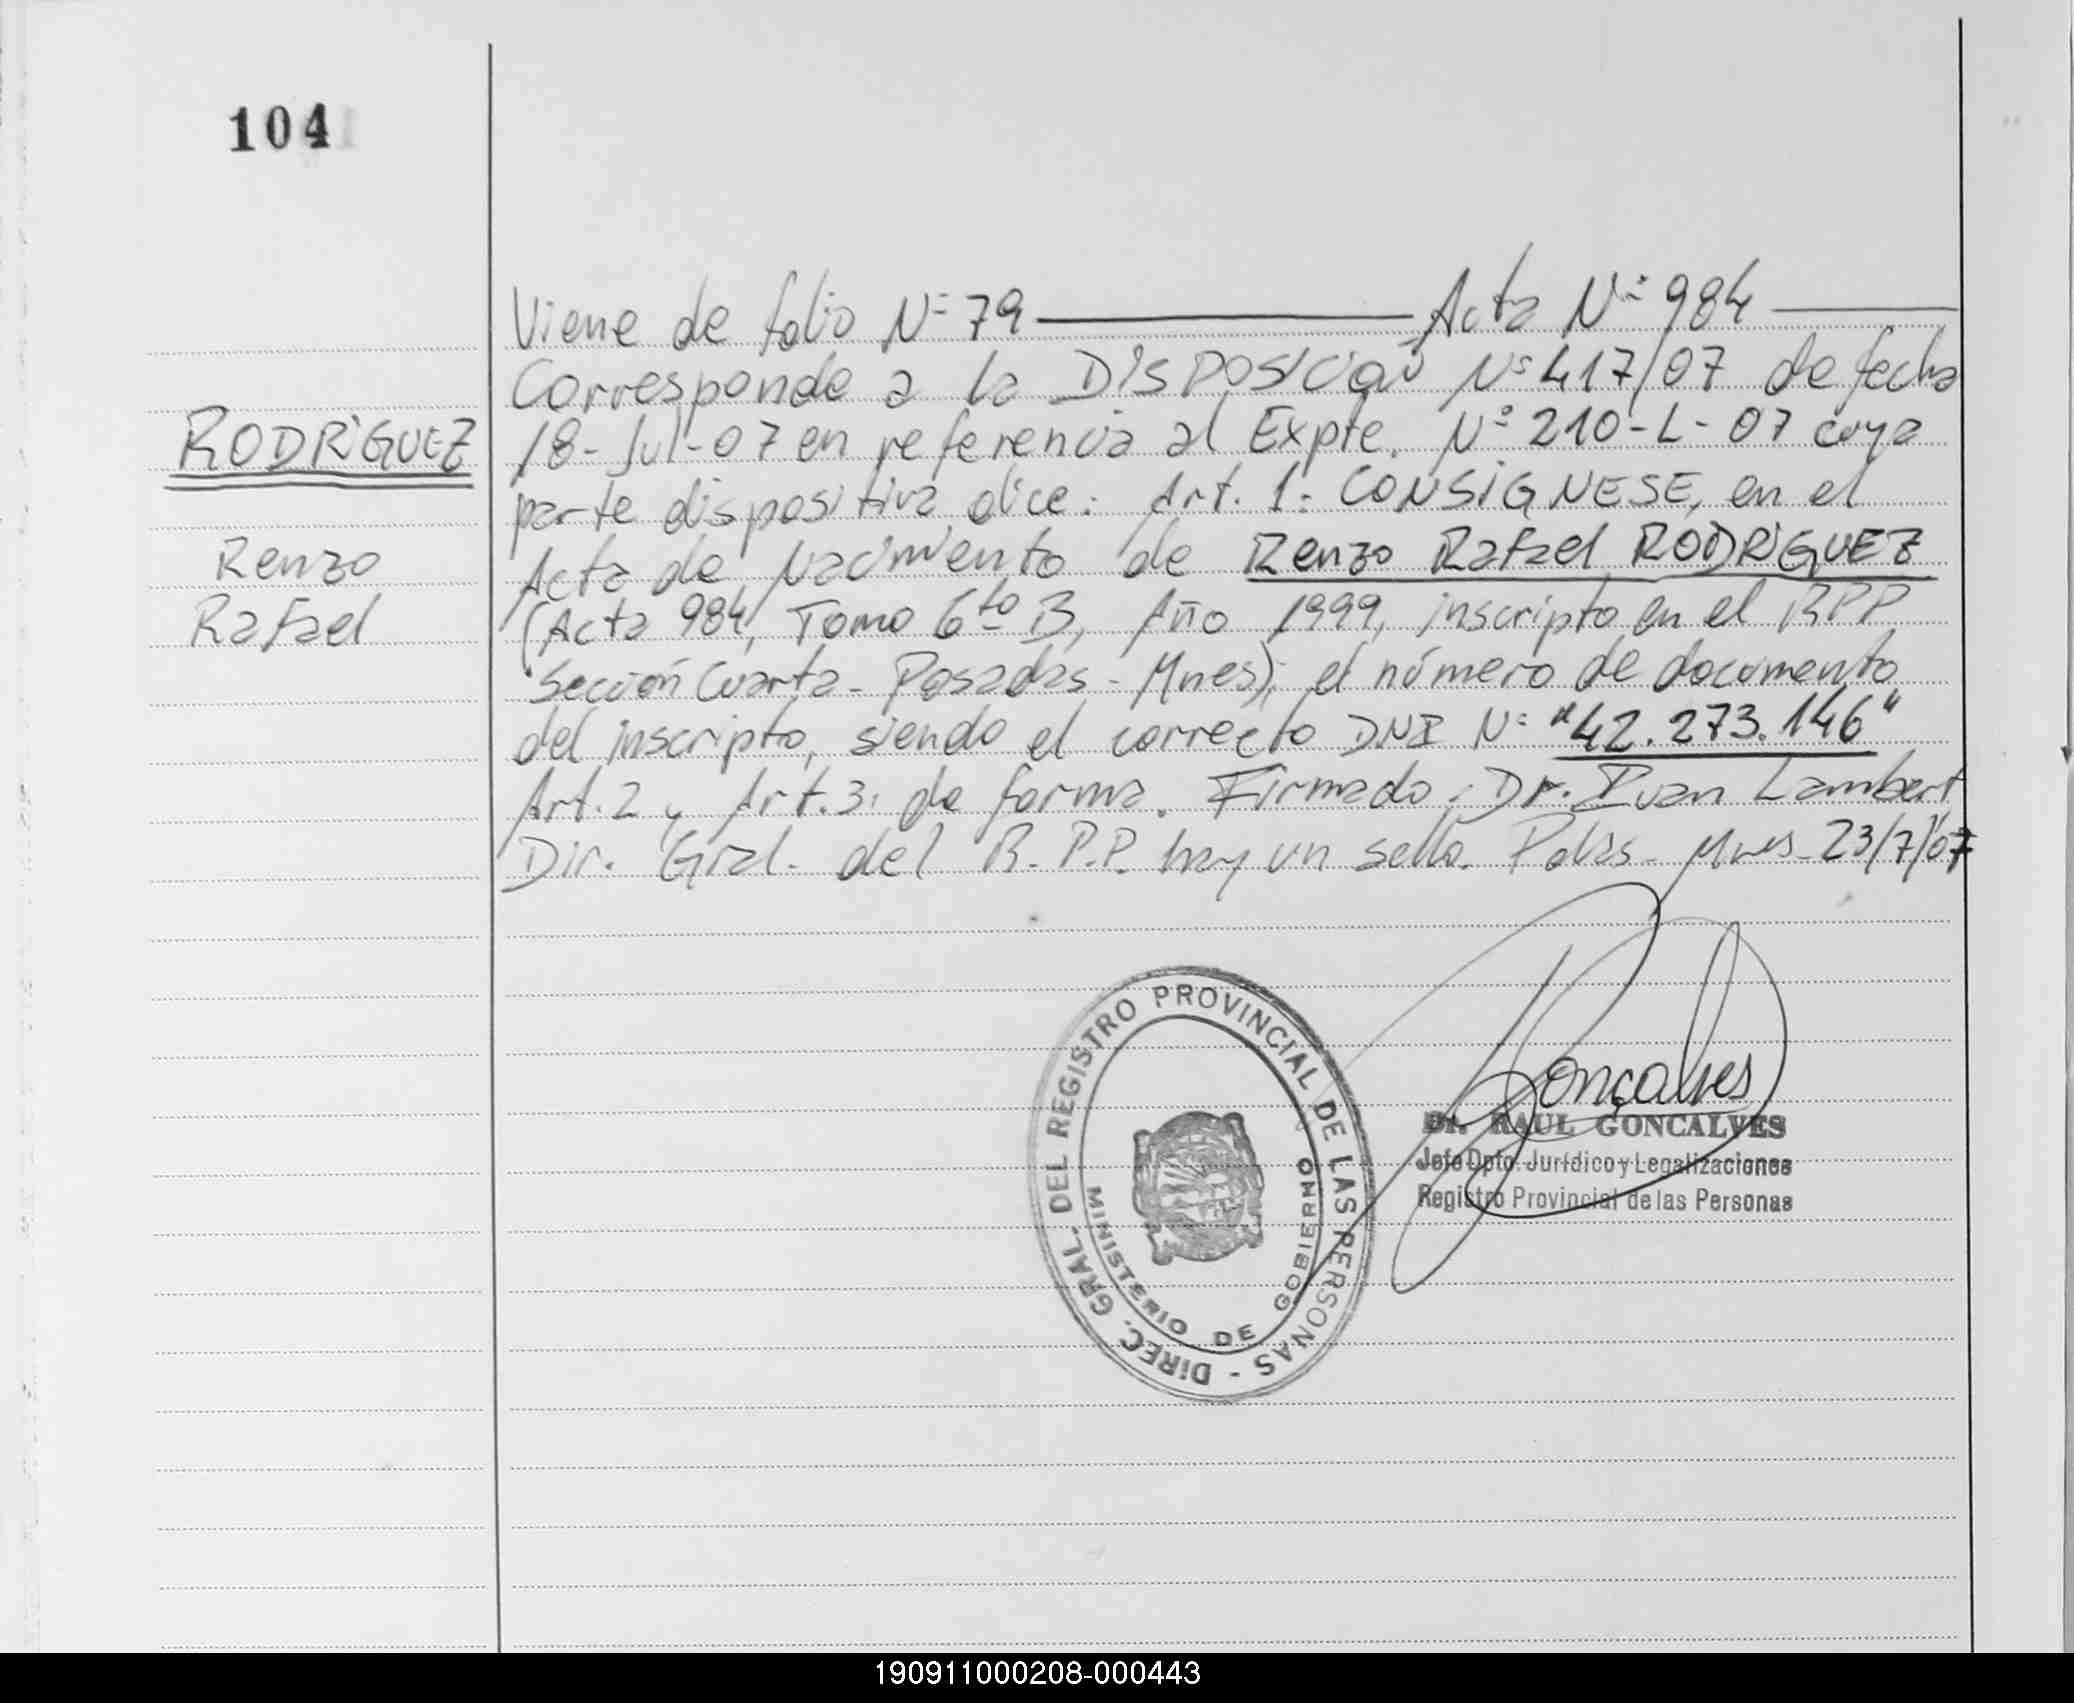 104
RODRIGUEZ
Renzo
Rafael
Viene de folio Nº 79 ———— Acta Nº 984 ——
Corresponde a la DISPOSICIÓN Nº 417/07 de fecha
18-Jul-07 en referencia al Expte. Nº 210-L-07 cuya
parte dispositiva dice: Art. 1: CONSIGNESE, en el
Acta de Nacimiento de Renzo Rafael RODRIGUEZ
(Acta 984, Tomo 6to B, Año 1999, inscripto en el RPP
Sección Cuarta - Posadas - Mnes); el número de documento
del inscripto, siendo el correcto DNI Nº "42.273.146"
Art. 2 y Art. 3: de forma. Firmado: Dr. Ivan Lambert
Dir. Gral. del R.P.P. hay un sello. Pdas - Mnes - 23/7/07
DIREC. GRAL. DEL REGISTRO PROVINCIAL DE LAS PERSONAS -
MINISTERIO DE GOBIERNO
Gonçalves
Dr. RAUL GONCALVES
Jefe Dpto. Jurídico y Legalizaciones
Registro Provincial de las Personas
190911000208-000443